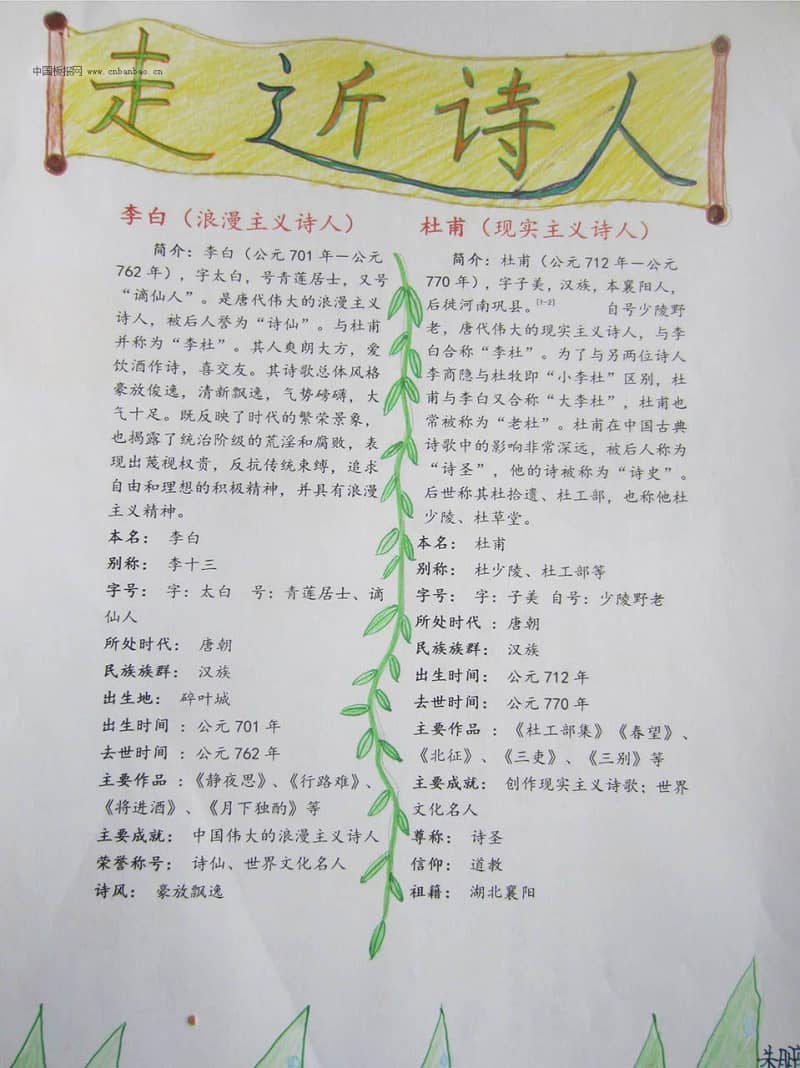 中国板报网 www.cnbanbao.cn
走近诗人
李白（浪漫主义诗人）
简介：李白（公元701年－公元
762年），字太白，号青莲居士，又号
“谪仙人”。是唐代伟大的浪漫主义
诗人，被后人誉为“诗仙”。与杜甫
并称为“李杜”。其人爽朗大方，爱
饮酒作诗，喜交友。其诗歌总体风格
豪放俊逸，清新飘逸，气势磅礴，大
气十足。既反映了时代的繁荣景象，
也揭露了统治阶级的荒淫和腐败，表
现出蔑视权贵，反抗传统束缚，追求
自由和理想的积极精神，并具有浪漫
主义精神。
本名： 李白
别称： 李十三
字号： 字：太白 号：青莲居士、谪
仙人
所处时代： 唐朝
民族族群： 汉族
出生地： 碎叶城
出生时间 ：公元701年
去世时间 ：公元762年
主要作品 ：《静夜思》、《行路难》、
《将进酒》、《月下独酌》等
主要成就： 中国伟大的浪漫主义诗人
荣誉称号： 诗仙、世界文化名人
诗风： 豪放飘逸
杜甫（现实主义诗人）
简介：杜甫（公元712年－公元
770年），字子美，汉族，本襄阳人，
后徙河南巩县。[1-2] 自号少陵野
老，唐代伟大的现实主义诗人，与李
白合称“李杜”。为了与另两位诗人
李商隐与杜牧即“小李杜”区别，杜
甫与李白又合称“大李杜”，杜甫也
常被称为“老杜”。杜甫在中国古典
诗歌中的影响非常深远，被后人称为
“诗圣”，他的诗被称为“诗史”。
后世称其杜拾遗、杜工部，也称他杜
少陵、杜草堂。
本名： 杜甫
别称： 杜少陵、杜工部等
字号： 字：子美 自号：少陵野老
所处时代 ：唐朝
民族族群： 汉族
出生时间： 公元712年
去世时间： 公元770年
主要作品 ：《杜工部集》《春望》、
《北征》、《三吏》、《三别》等
主要成就： 创作现实主义诗歌；世界
文化名人
尊称： 诗圣
信仰： 道教
祖籍： 湖北襄阳